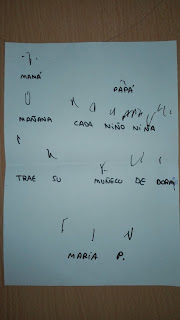 MAMÁ PAPÁ
MAÑANA CADA NIÑO NIÑA
TRAE SU MUÑECO DE
MARÍA P.